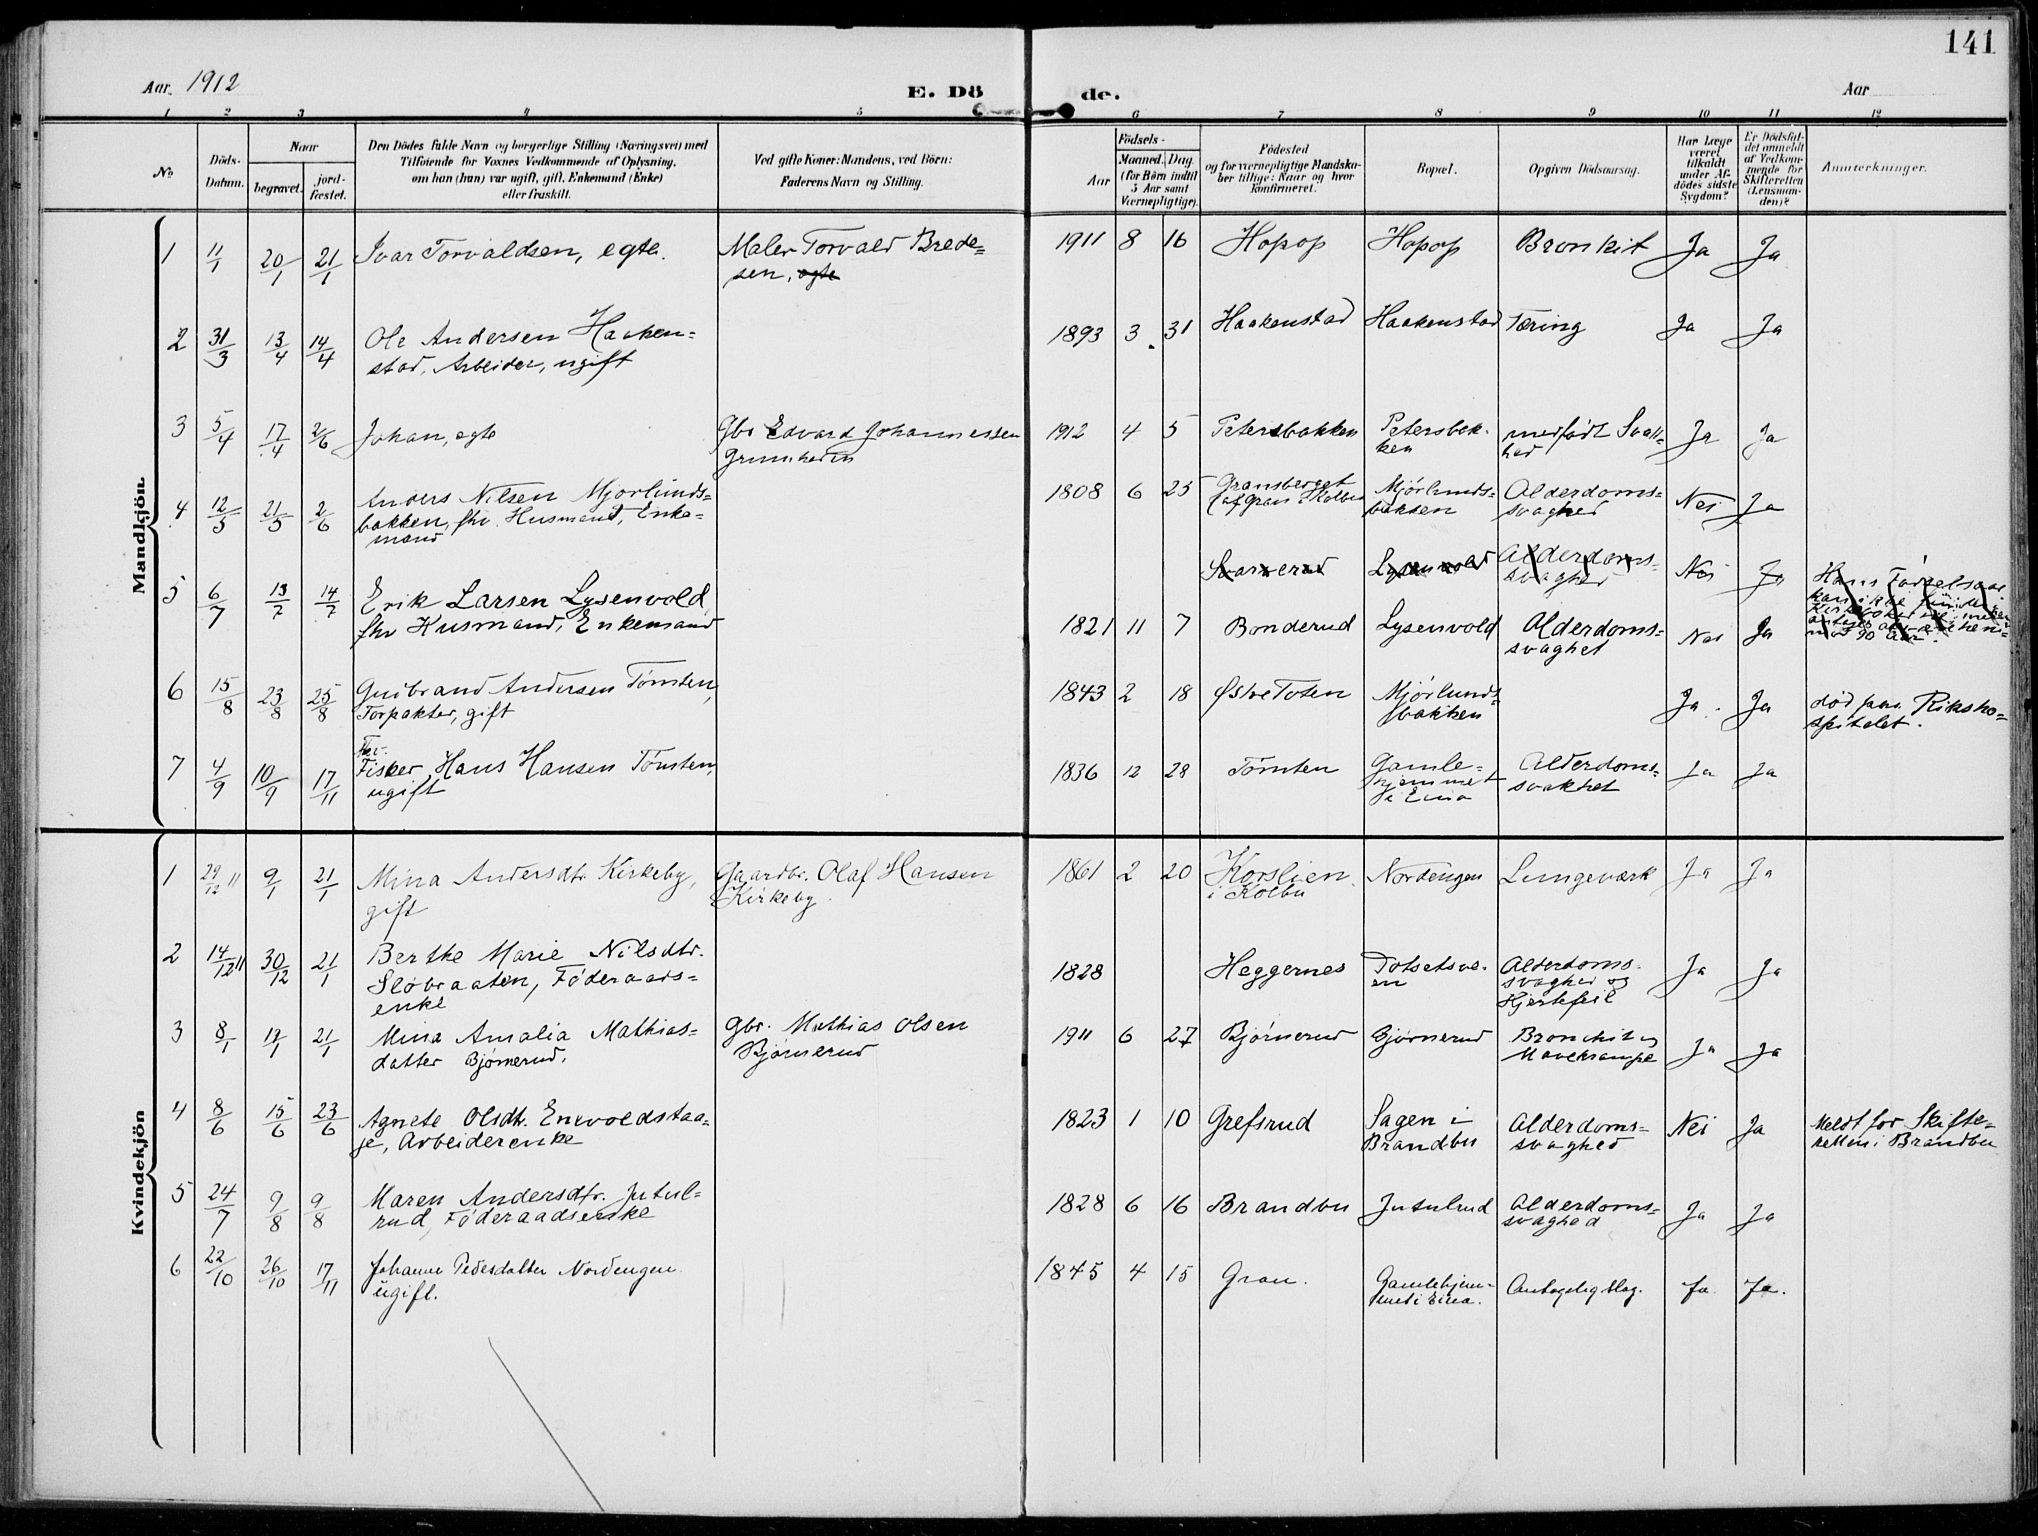 141
Aar. 1912
E. Dö de.
Aar
1 2 3 4 5 6 7 8 9 10 11 12
No
Döds-Datum.
Naar
begravet.
jord-fæstet.
Den Dödes fulde Navn og borgerlige Stilling (Næringsvei) med
Tilföiende for Voxnes Vedkommende af Oplysning,
om han (hun) var ugift, gift, Enkemand (Enke)
eller fraskilt.
Ved gifte Koner: Mandens, ved Börn:
Faderens Navn og Stilling.
Födsels-
Aar
Maaned. Dag.
(for Börn indtil
5 Aar samt
Værnepligtige).
Födested
og for værnepligtige Mandska-
ber tillige: Naar og hvor
konfirmeret.
Bopæl.
Opgiven Dödsaarsag.
Har Læge
været
tilkaldt
under Af-
dödes sidste
Sygdom?
Er Dödsfal-
det anmeldt
af Vedkom-
mende for
Skifteretten
(Lensman-
den)?
Anmærkninger.
Mandkjön.
1 11/1 20/1 21/1 Ivar Torvaldsen, egte. Maler Torvald Brede-
sen, egte
1911 8 16 Hopop Hopop Bronkit Ja Ja
2 31/3 13/4 14/4 Ole Andersen Haaken-
stad, Arbeider, ugift
1893 3 31 Haakenstad Haakenstad Tæring Ja Ja
3 5/4 17/4 2/6 Johan, egte Gbr Edvard Johannessen
1912 4 5 Petersbakken Petersbak-
ken medfødt Svak-
hed Ja Ja
4 12/5 21/5 2/6 Anders Nilsen Mjørlunds-
bakken, fhv. Husmand, Enke-
mand
1808 6 25 Gransberget
Mjørlunds-
bakken Alderdoms-
svaghed Nei Ja
Svarverud Lysenvold Alderdoms-
svaghed Nei Ja
5 6/7 13/7 14/7 Erik Larsen Lysenvold,
fhv Husmand, Enkemand
1821 11 7 Bonderud Lysenvold Alderdoms-
svaghet Nei Ja
6 15/8 23/8 25/8 Gudbrand Andersen Tømten,
Forpakter, gift
1843 2 18 Østre Toten Mjørlunds
bakken Ja Ja død paa Riksho-
spitalet.
7 4/9 10/9 17/11 Fhv.
Fisker Hans Hansen Tømten,
ugift
1836 12 28 Tømten Gamle-
hjemmet
i Eina Alderdoms-
svakhet Ja Ja
Kvindekjön
1 29/12 11 9/1 21/1 Mina Andersdtr Kirkeby,
gift Gaardbr. Olaf Hansen
Kirkeby
1861 2 20 Korslien
i Kolbu Nordengen Lungeværk Ja Ja
2 14/12 11 30/12 21/1 Berthe Marie Nilsdtr.
Sløbraaten, Føderaads-
enke
1828 Heggernes Totsetsve-
en Alderdoms-
svaghed og
Hjertefeil Ja Ja
3 8/1 17/1 21/1 Mina Amalia Mathias-
datter Bjørnerud. Gbr. Mathias Olsen
Bjørnerud
1911 6 27 Bjørnerud Bjørnerud Bronchit og
Mavekrampe Ja Ja
4 8/6 15/6 23/6 Agnete Olsdtr. Envoldstaa-
je, Arbeiderenke
1823 1 10 Grefsrud Sagen i
Brandbu Alderdoms-
svaghed Nei Ja Meldt for Skifte-
retten i Brandbu
5 24/7 9/8 9/8 Maren Andersdtr. Jutul-
rud, Føderaadsenke
1828 6 16 Brandbu Jutulrud Alderdoms-
svaghed Ja Ja
6 22/10 26/10 17/11 Johanne Pedersdatter Nordengen
ugift.
1845 4 15 Gran. Gamlehjem-
met i Eina. Antagelig slag. Ja. Ja.